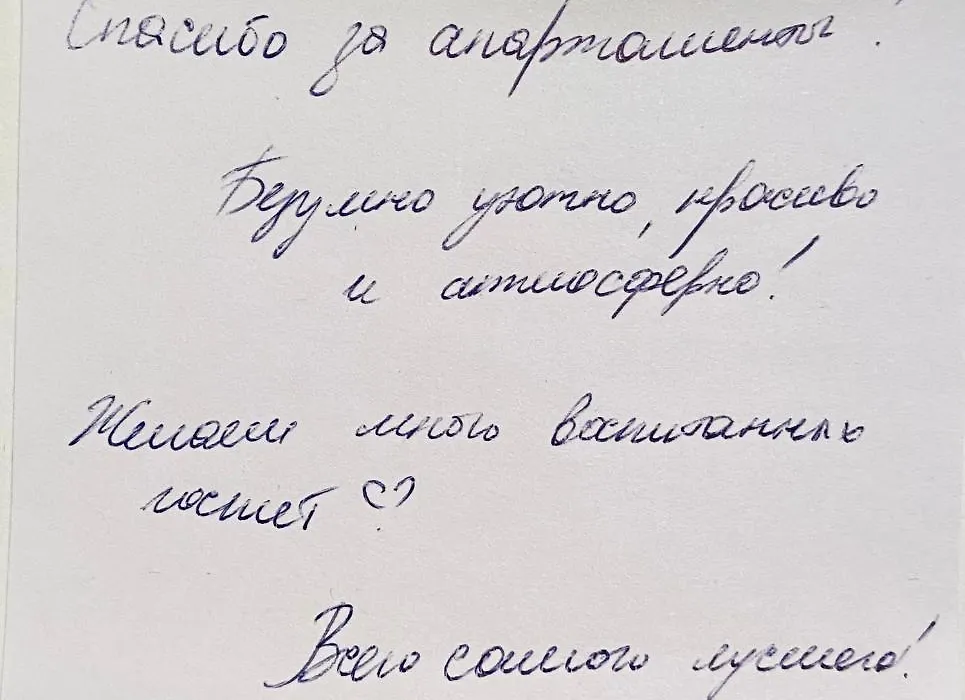 Спасибо за апартаменты!
Безумно уютно, красиво
и атмосферно!
Желаем много воспитанных
гостей ♡
Всего самого лучшего!